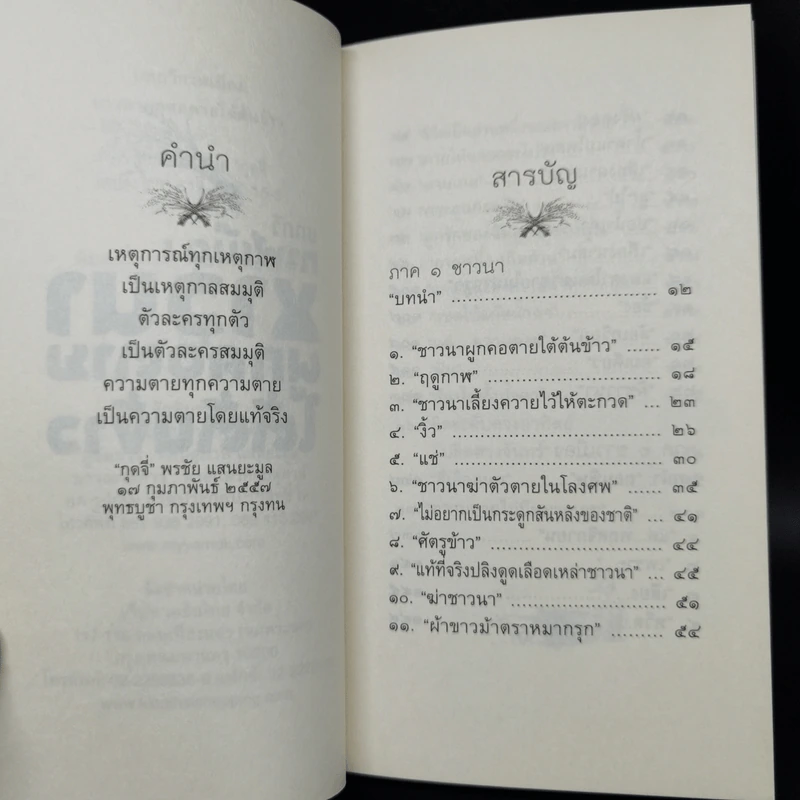 คำนำ
เหตุการณ์ทุกเหตุกาฬ
เป็นเหตุกาลสมมุติ
ตัวละครทุกตัว
เป็นตัวละครสมมุติ
ความตายทุกความตาย
เป็นความตายโดยแท้จริง
"กุดจี่" พรชัย แสนยะมูล
๑๗ กุมภาพันธ์ ๒๕๕๗
พุทธบูชา กรุงเทพฯ กรุงทน
สารบัญ
ภาค ๑ ชาวนา
"บทนำ" ................................ ๑๒
๑. "ชาวนาผูกคอตายใต้ต้นข้าว" ...... ๑๕
๒. "ฤดูกาฬ" ................................ ๑๘
๓. "ชาวนาเลี้ยงควายไว้ให้ตะกวด" ... ๒๓
๔. "งิ้ว" ................................ ๒๖
๕. "แช่" ................................ ๓๐
๖. "ชาวนาฆ่าตัวตายในโลงศพ" ........ ๓๕
๗. "ไม่อยากเป็นกระดูกสันหลังของชาติ" .. ๔๑
๘. "ศัตรูข้าว" ........................ ๔๔
๙. "แท้ที่จริงปลิงดูดเลือดเหล่าชาวนา" .. ๔๕
๑๐. "ฆ่าชาวนา" ........................ ๕๑
๑๑. "ผ้าขาวม้าตราหมากรุก" ......... ๕๔